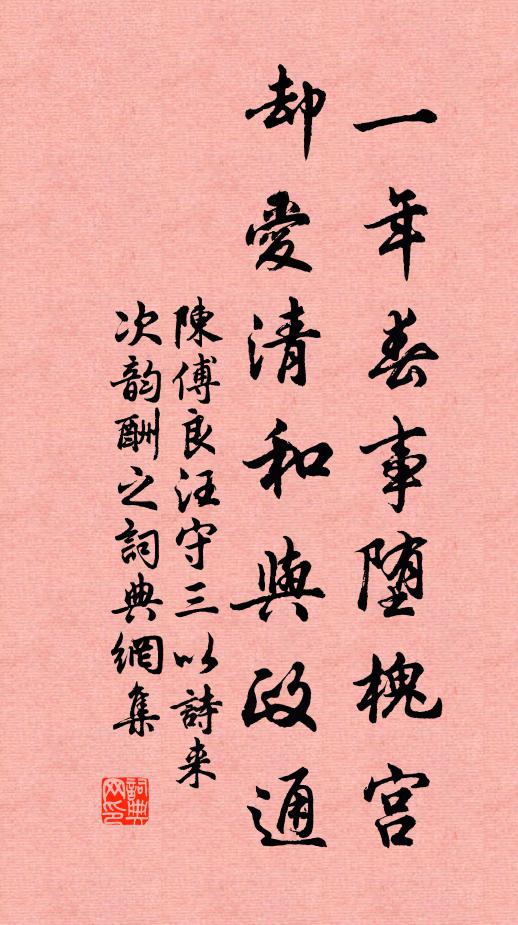 一年春事堕槐宫
却愛清和與政通
陳傅良汪守三以詩来
次韵酬之詞典網集
詞典网印